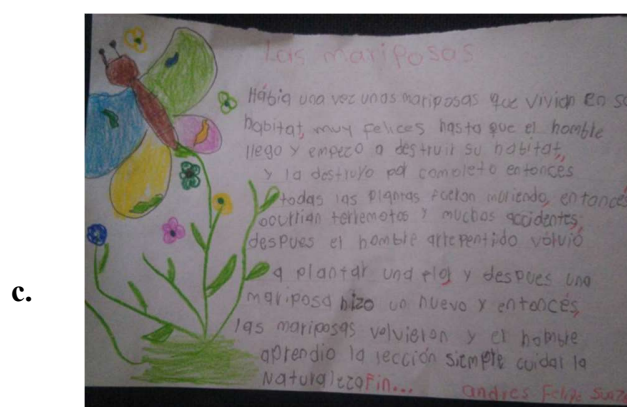 c.
Las mariposas
Había una vez unas mariposas que vivian en
habitat, muy felices hasta que el hombre
llego y empezo a destruir su habitat,
y la destruyo por completo entonces
todas las plantas fueron muriendo, entonces
ocurrian terremotos y muchos accidentes,
despues el hombre arrepentido volvió
a plantar una flor y despues una
mariposa hizo un huevo y entonces,
las mariposas volvieron y el hombre
aprendio la lección siempre cuidar la
Naturaleza Fin...
andres Felipe